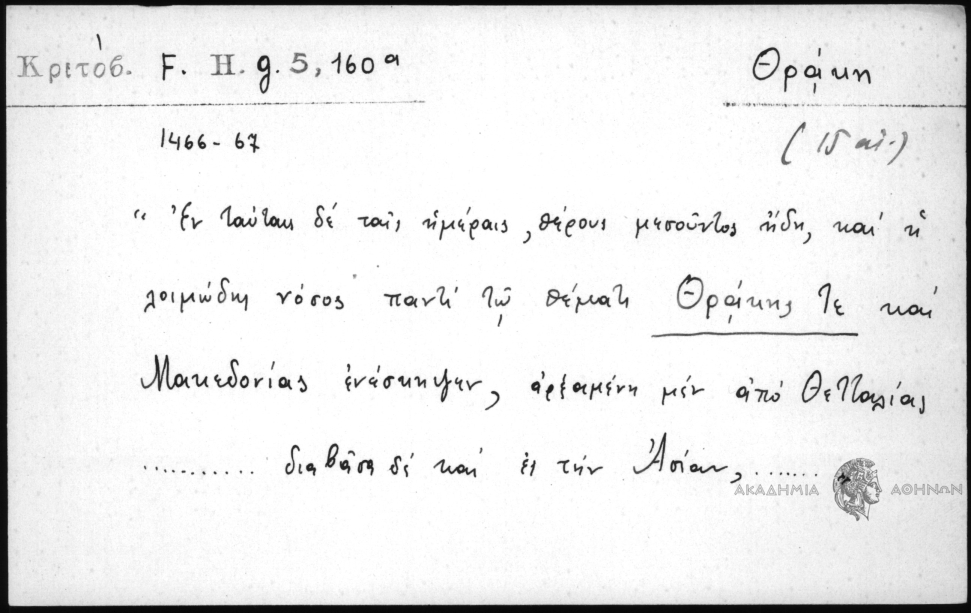 Κριτόβ. F. H. g. 5, 160ᵃ Θρᾴκη
1466-67 (15 αἰ.)
“ Ἐν ταύταις δέ ταῖς ἡμέραις, θέρους μεσοῦντος ἤδη, καί ἡ
λοιμώδης νόσος παντί τῷ θέματι Θρᾴκης τε καί
Μακεδονίας ἐνέσκηψεν, ἀρξαμένη μέν ἀπό Θετταλίας
........... διαβᾶσα δέ καί ἐς τήν Ἀσίαν, ........ „
ΑΚΑΔΗΜΙΑ ΑΘΗΝΩΝ